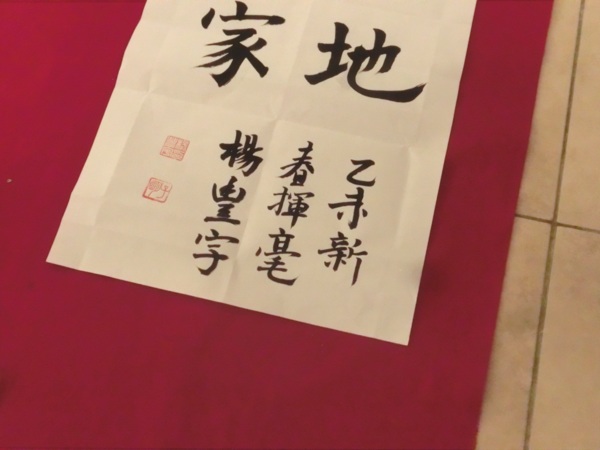 地
家
乙未新
春揮毫
楊豐字